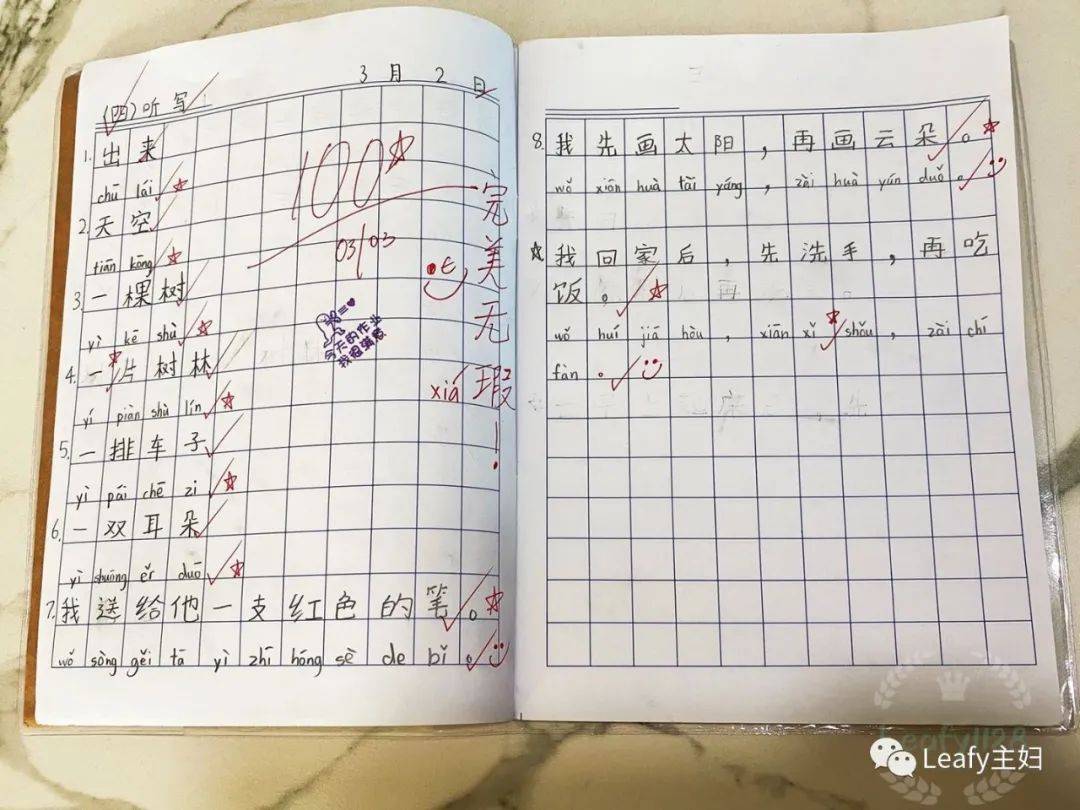 3月2日
(四)听写
1.出来
chū lái
2.天空
tiān kōng
3.一棵树
yì kē shù
4.一片树林
yí piàn shù lín
5.一排车子
yì pái chē zi
6.一双耳朵
yì shuāng ěr duǒ
7.我送给他一支红色的笔。
wǒ sòng gěi tā yì zhī hóng sè de bǐ。
100
03/03
完美无瑕!
xiá
今天的作业
我很满意
8.我先画太阳,再画云朵。
wǒ xiān huà tài yáng, zài huà yún duǒ。
我回家后,先洗手,再吃
饭。
wǒ huí jiā hòu, xiān xǐ shǒu, zài chī
fàn。
Leafy1128
Leafy主妇